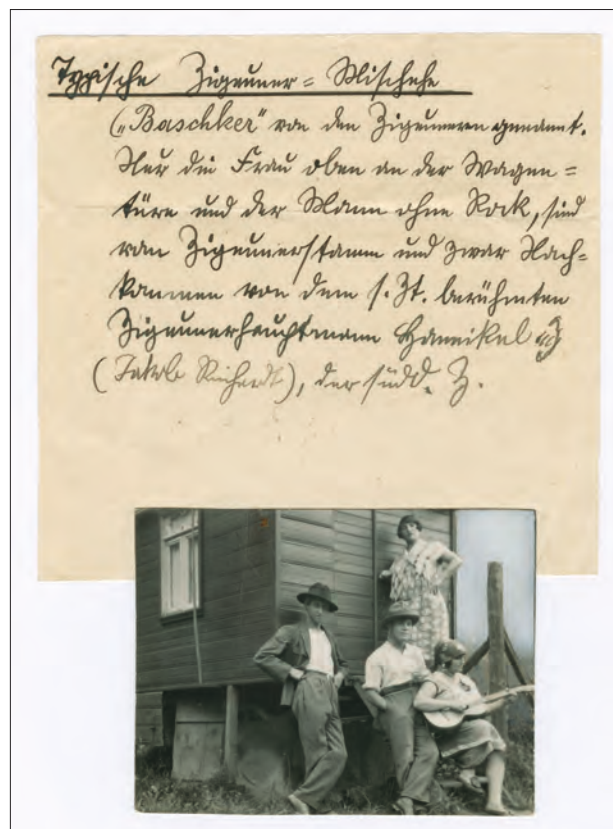 Typische Zigeuner = Mischehe
(„Baschker" von den Zigeunern genannt.
Nur die Frau oben an der Wagen =
türe und der Mann ohne Rock, sind
vom Zigeunerstamm und zwar Nach=
kommen von dem s. Zt. berühmten
Zigeunerhauptmann Hannikel
(Jakob Reinhardt), der südd. Z.